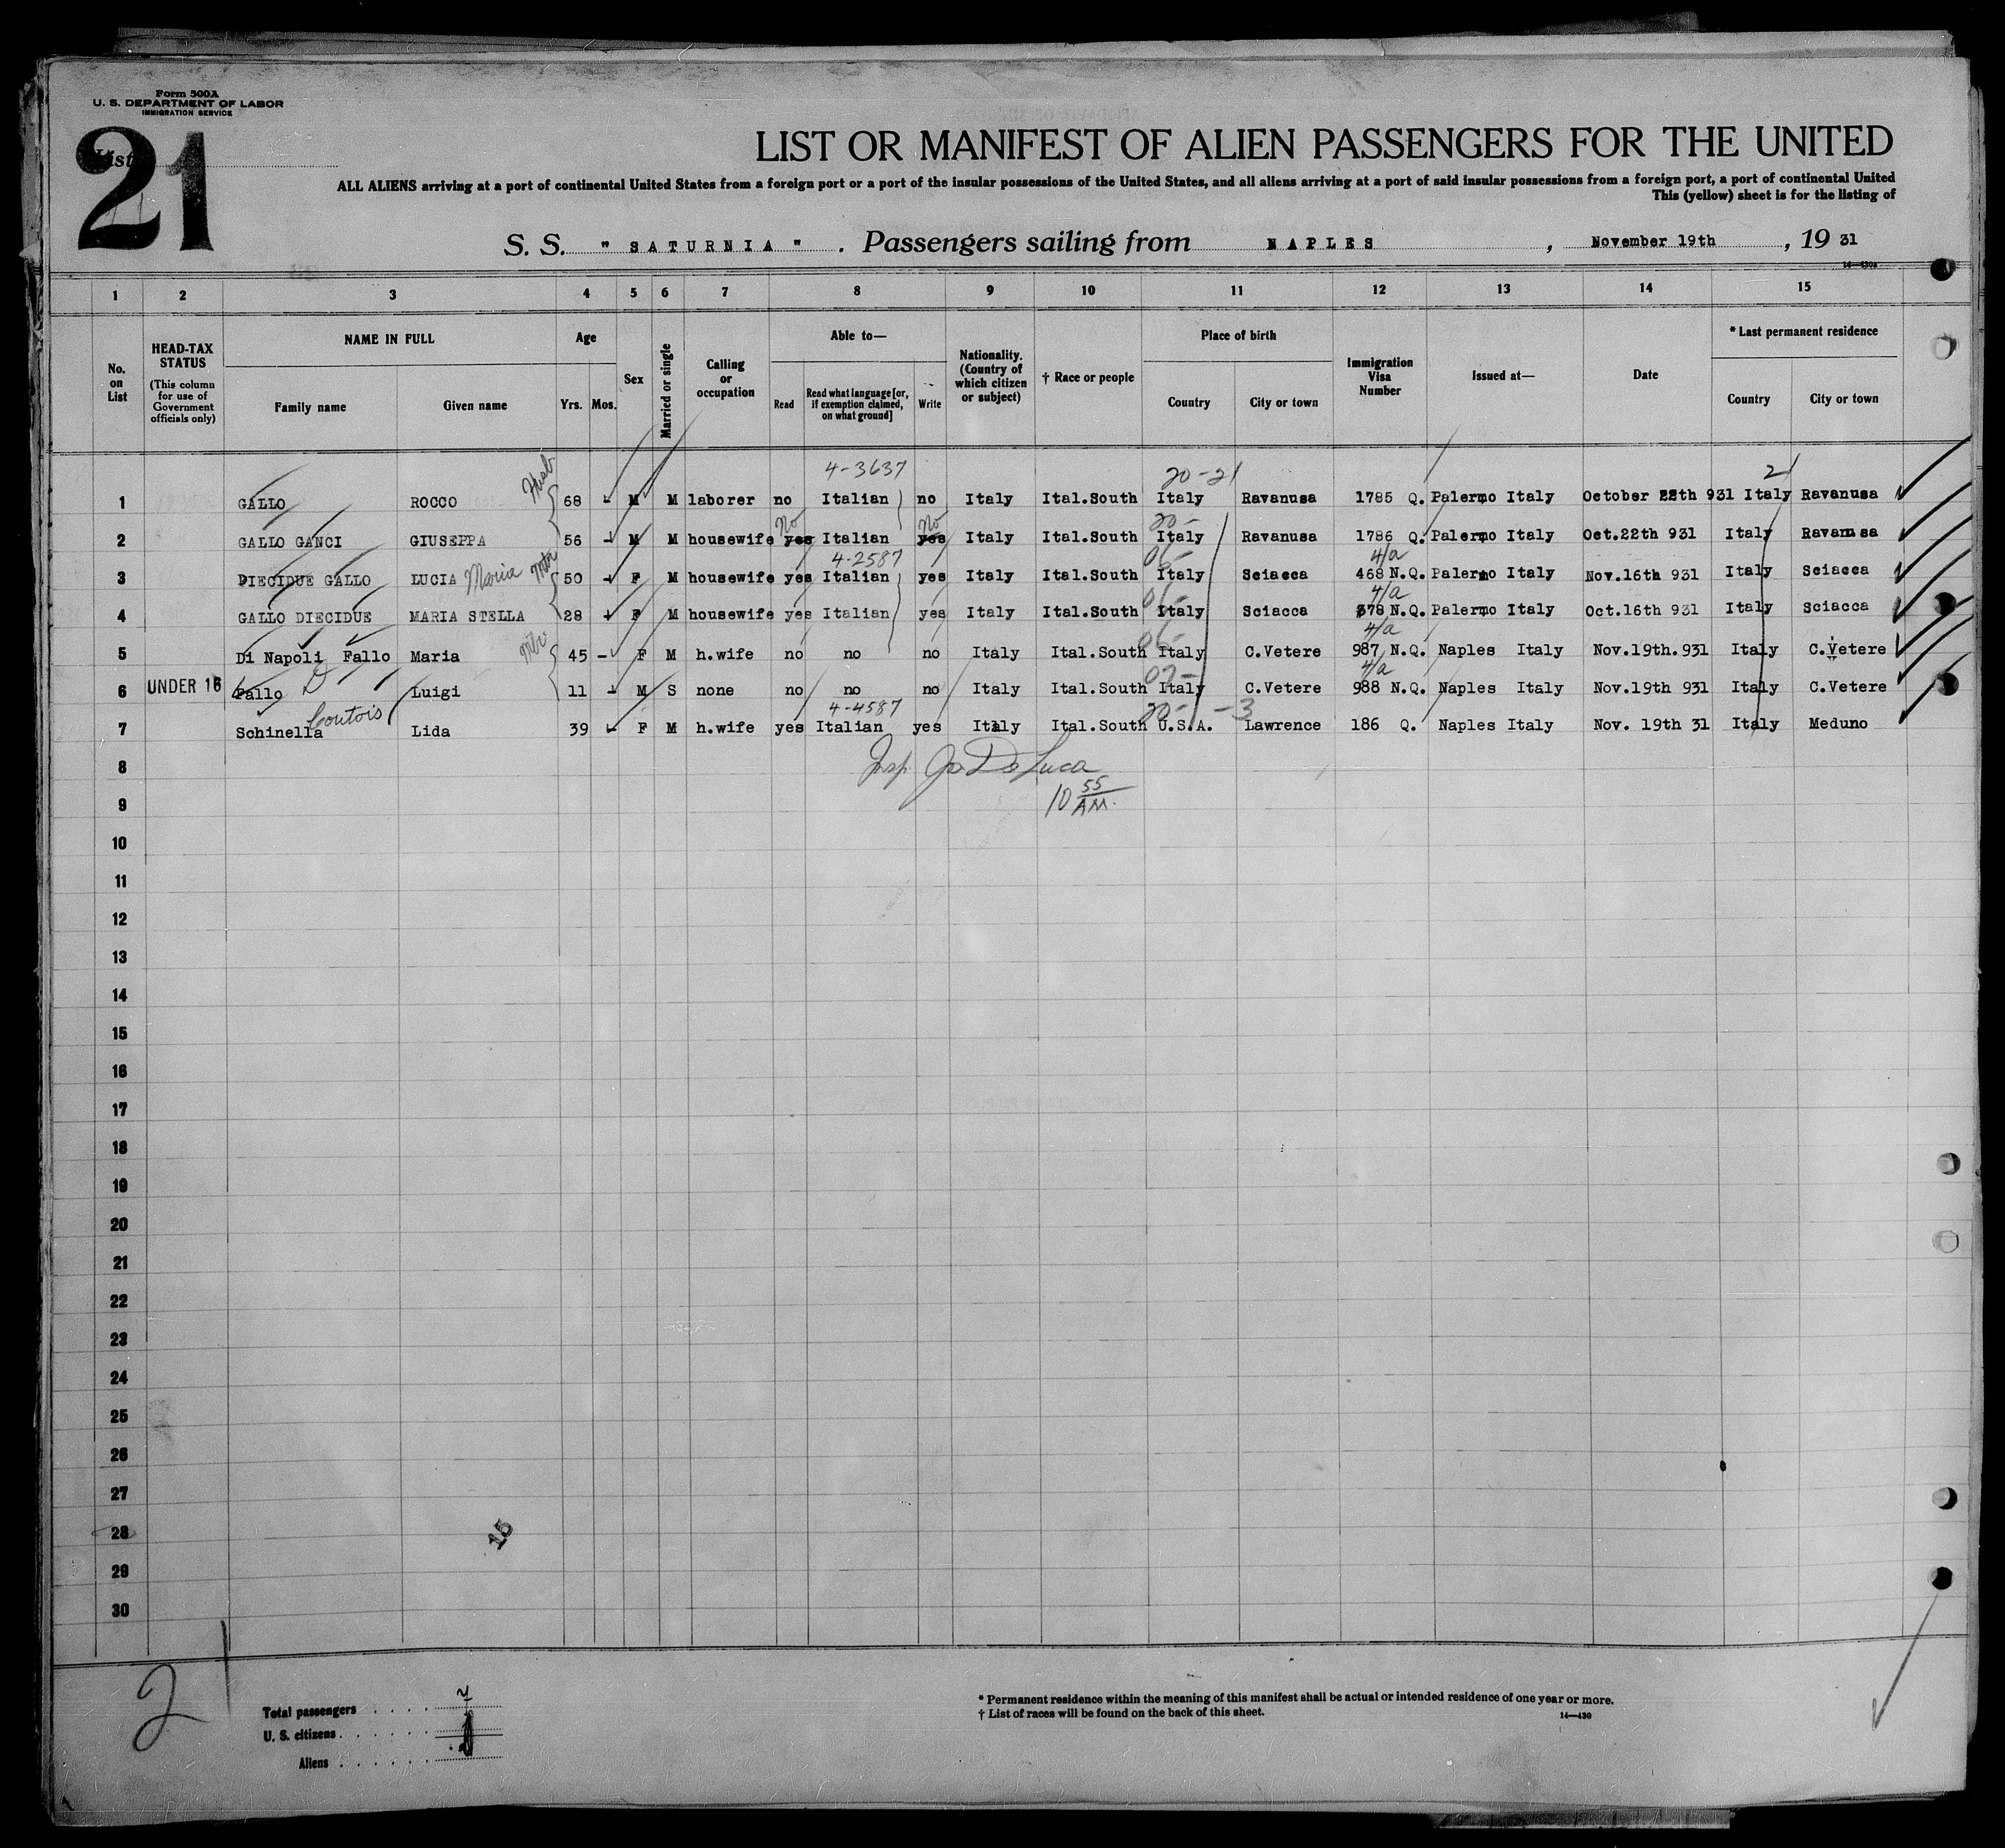 Form 500A
U. S. DEPARTMENT OF LABOR
IMMIGRATION SERVICE
List
21
LIST OR MANIFEST OF ALIEN PASSENGERS FOR THE UNITED
ALL ALIENS arriving at a port of continental United States from a foreign port or a port of the insular possessions of the United States, and all aliens arriving at a port of said insular possessions from a foreign port, a port of continental United
This (yellow) sheet is for the listing of
S. S. "SATURNIA". Passengers sailing from NAPLES, November 19th, 19 31
14—430a
1 2 3 4 5 6 7 8 9 10 11 12 13 14 15
No. on List
HEAD-TAX STATUS (This column for use of Government officials only)
NAME IN FULL
Family name Given name
Age
Yrs. Mos.
Sex
Married or single
Calling or occupation
Able to—
Read Read what language [or, if exemption claimed, on what ground] Write
Nationality. (Country of which citizen or subject)
† Race or people
Place of birth
Country City or town
Immigration Visa Number
Issued at—
Date
* Last permanent residence
Country City or town
Husb 4-3637 20-21 21
1 GALLO ROCCO 68 - M M laborer no Italian no Italy Ital.South Italy Ravanusa 1785 Q. Palermo Italy October 22th 931 Italy Ravanusa
No No 20-
2 GALLO GANCI GIUSEPPA 56 - M M housewife yes Italian yes Italy Ital.South Italy Ravanusa 1786 Q. Palermo Italy Oct.22th 931 Italy Ravanusa
4-2587 06- 4/a
3 DIECIDUE GALLO LUCIA Maria 50 - F M housewife yes Italian yes Italy Ital.South Italy Sciacca 468 N.Q. Palermo Italy Nov.16th 931 Italy Sciacca
4/a
4 GALLO DIECIDUE MARIA STELLA 28 - F M housewife yes Italian yes Italy Ital.South Italy Sciacca 378 N.Q. Palermo Italy Oct.16th 931 Italy Sciacca
06- 4/a
5 Di Napoli Fallo Maria 45 - F M h.wife no no no Italy Ital.South Italy C.Vetere 987 N.Q. Naples Italy Nov.19th.931 Italy C.Vetere
4/a
6 UNDER 16 Fallo D Luigi 11 - M S none no no no Italy Ital.South Italy C.Vetere 988 N.Q. Naples Italy Nov.19th 931 Italy C.Vetere
4-4587 20- -3
7 Schinella Coutois Lida 39 - F M h.wife yes Italian yes Italy Ital.South U.S.A. Lawrence 186 Q. Naples Italy Nov. 19th 31 Italy Meduno
8
Insp. Jo De Luca
9
10 55 AM.
10
11
12
13
14
15
16
17
18
19
20
21
22
23
24
25
26
27
28
15
29
30
2
Total passengers
U. S. citizens
Aliens
* Permanent residence within the meaning of this manifest shall be actual or intended residence of one year or more.
† List of races will be found on the back of this sheet.
14—430